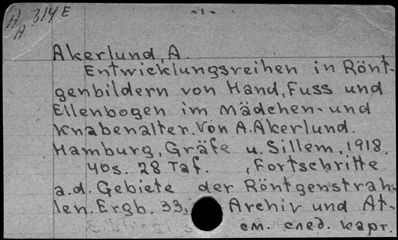 A 314 E
A
- 1 -
Akerlund, A.
Entwicklungsreihen in Rönt-
genbildern von Hand, Fuss und
Ellenbogen im Mädchen- und
Knabenalter. Von A. Akerlund.
Hamburg, Gräfe u. Sillem, 1918.
40s. 28 Taf. , Fortschritte
a.d. Gebiete der Röntgenstrah-
len. Ergb. 33, Archiv und At-
см. след. карт.